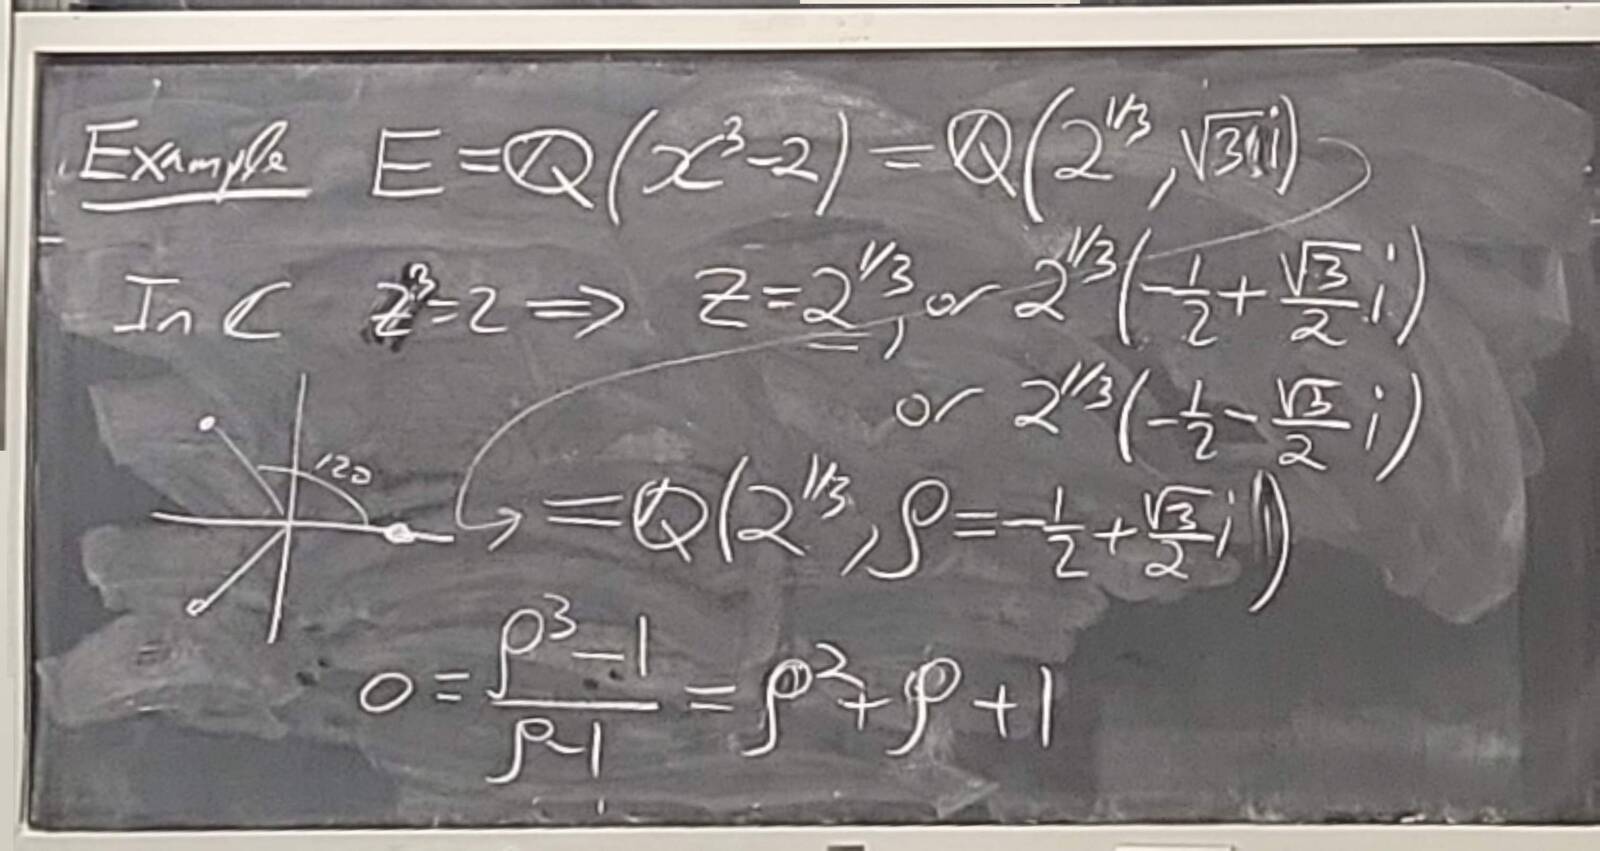 Example E = ℚ(x³-2) = ℚ(2^{1/3}, √3 i)
In ℂ z³=2 ⇒ z=2^{1/3}, or 2^{1/3}(-1/2 + √3/2 i)
or 2^{1/3}(-1/2 - √3/2 i)
120
= ℚ(2^{1/3}, ρ = -1/2 + √3/2 i)
0 = (ρ³-1)/(ρ-1) = ρ²+ρ+1